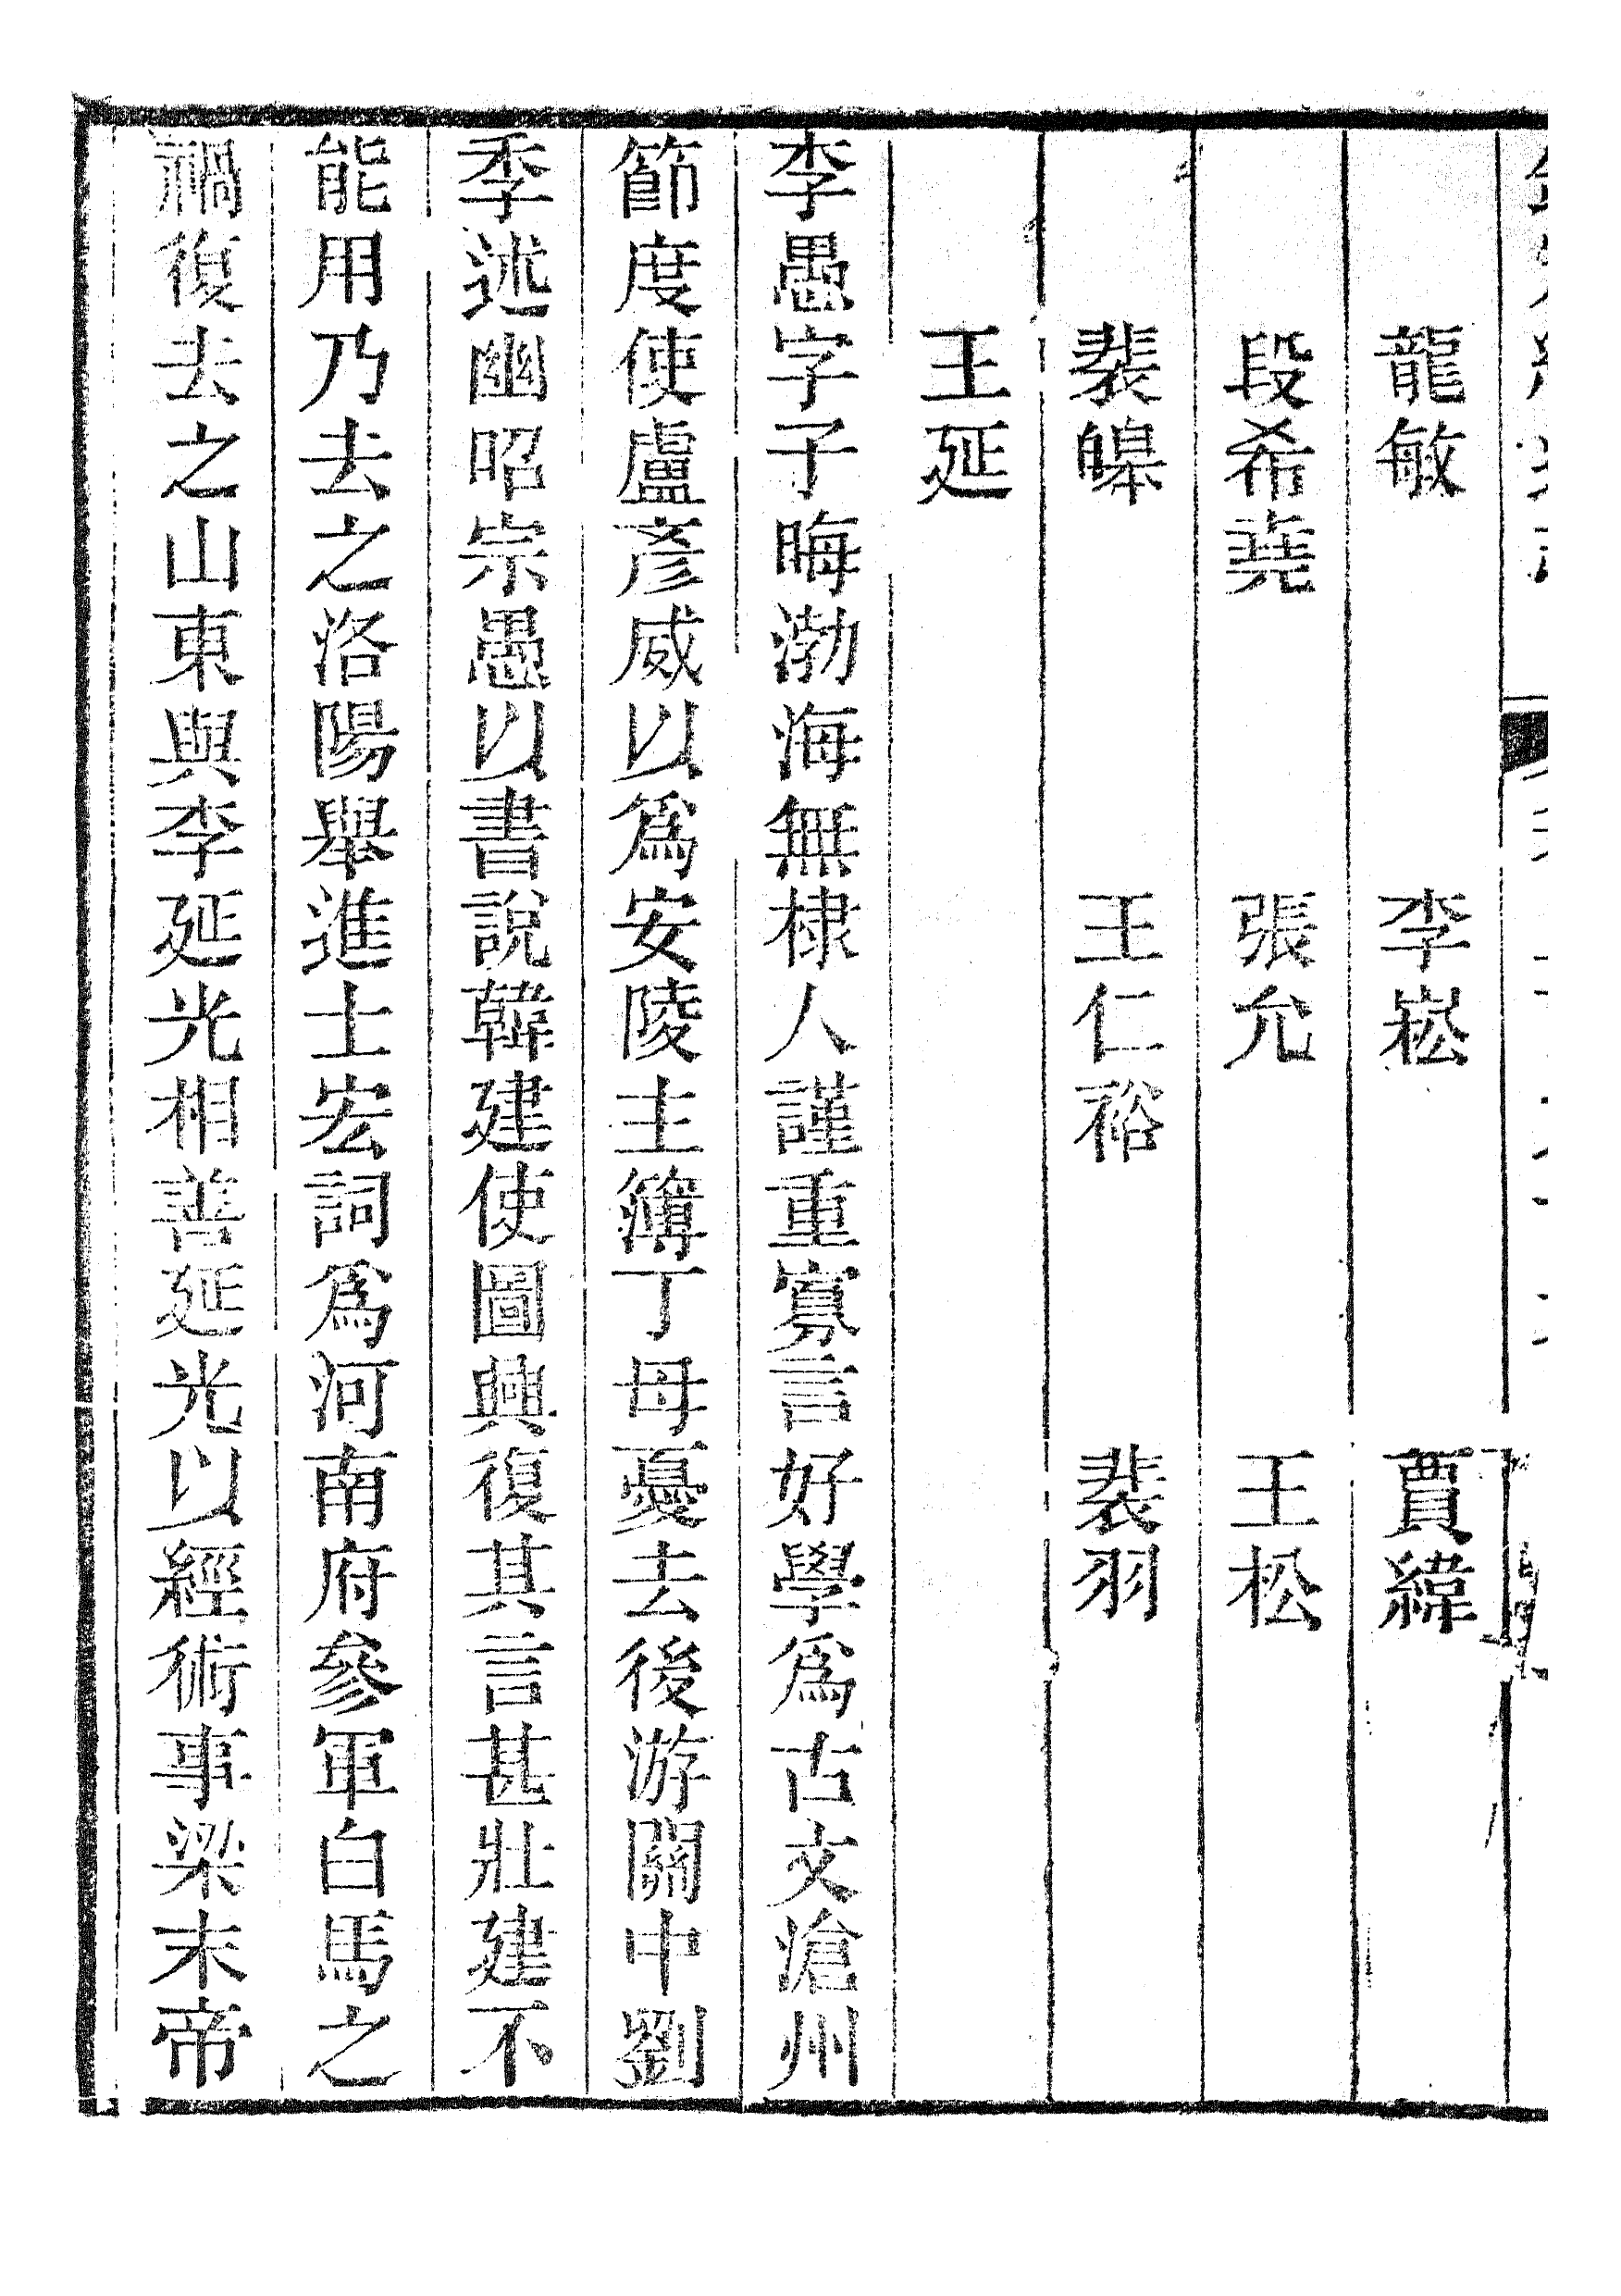 龍敏 李崧 賈緯
段希堯 張允 王松
裴皞 王仁裕 裴羽
王延
李愚字子晦渤海無棣人謹重寡言好學爲古文滄州
節度使盧彥威以爲安陵主簿丁母憂去後游關中劉
季述幽昭宗愚以書說韓建使圖興復其言甚壯建不
能用乃去之洛陽舉進士宏詞爲河南府參軍白馬之
禍復去之山東與李延光相善延光以經術事梁末帝